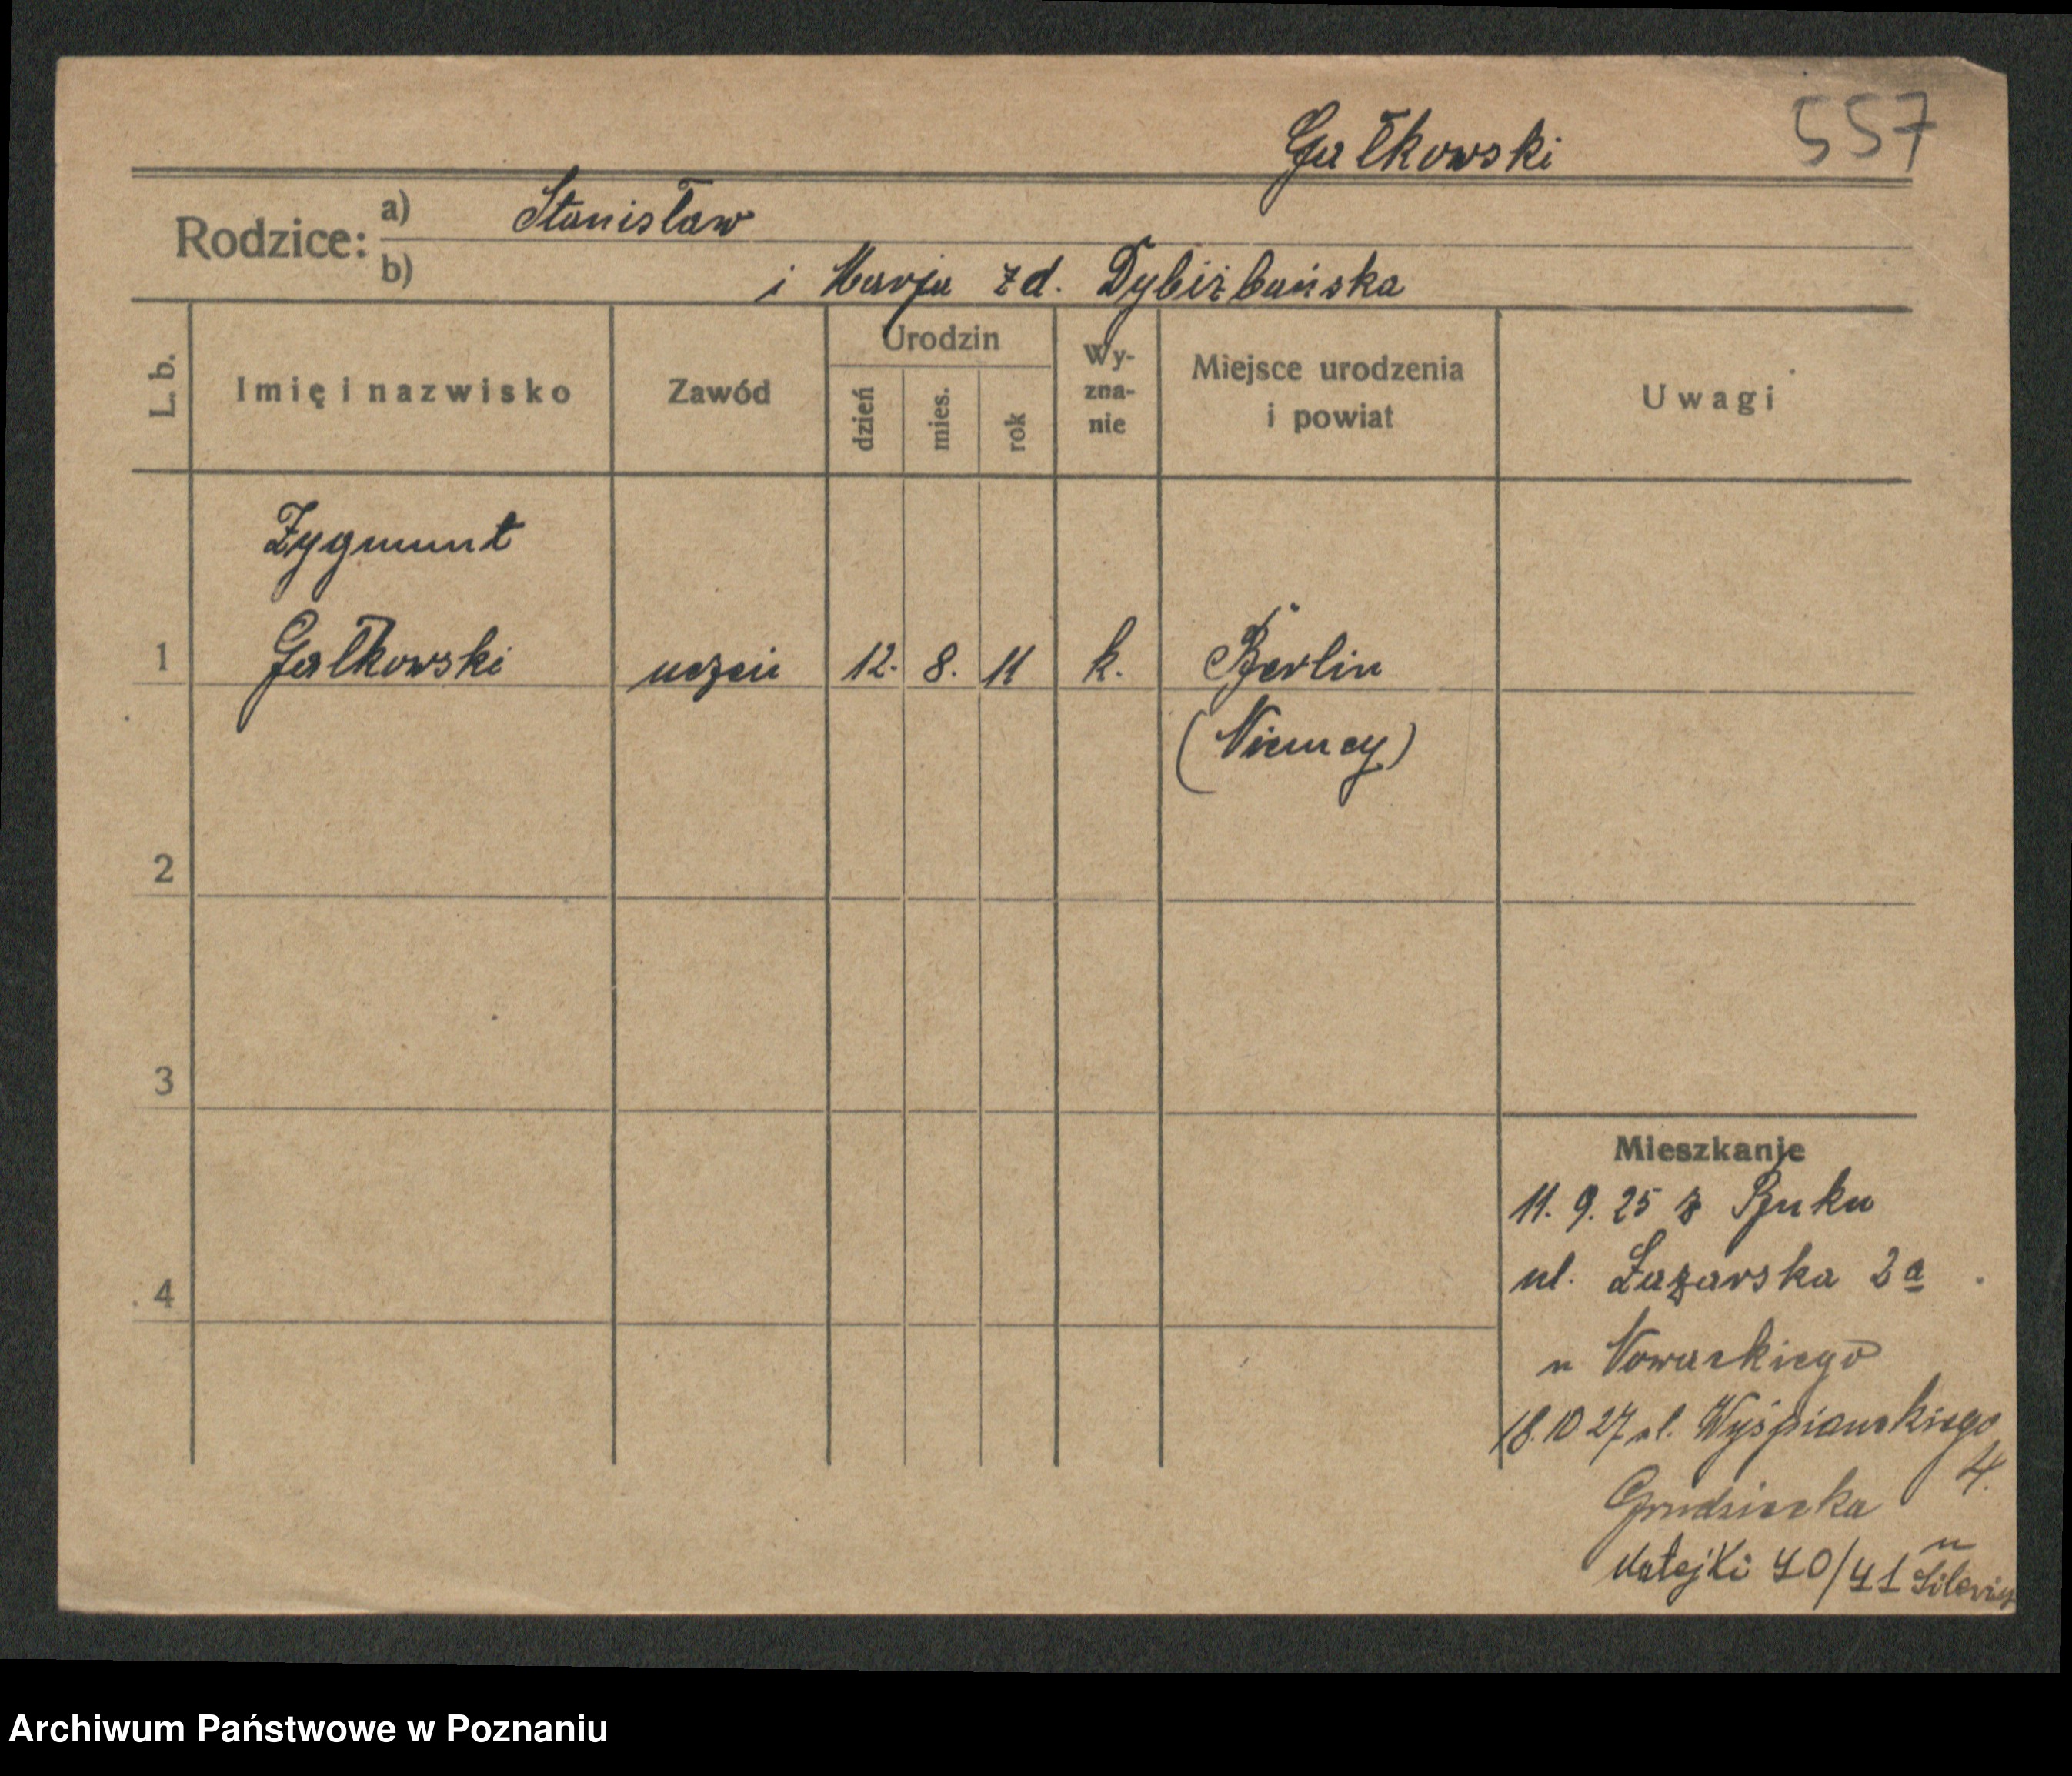 Gałkowski 557
Rodzice: a) Stanisław
b) i Marja zd. Dybizbańska
L. b.
Imię i nazwisko
Zawód
Urodzin
dzień
mies.
rok
Wy-
zna-
nie
Miejsce urodzenia
i powiat
Uwagi
Zygmunt
1 Gałkowski uczeń 12. 8. 11 k. Berlin
(Niemcy)
2
3
Mieszkanie
11. 9. 25 z Buku
ul. Łazarska 2a
4
u Nowackiego
18.10 27 ul. Wyśpiańskiego
4.
Grudzieńka
Matejki 40/41 u
Archiwum Państwowe w Poznaniu